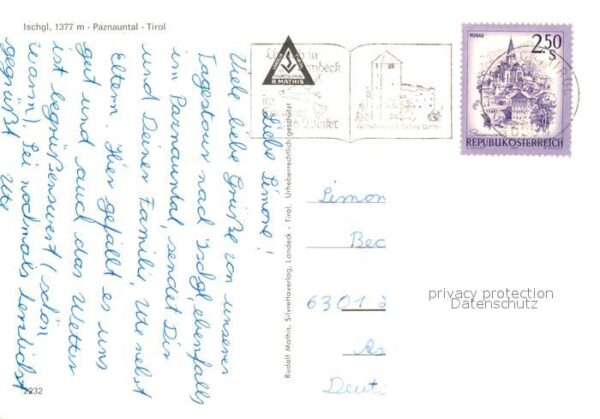 Ischgl, 1377 m - Paznauntal - Tirol
Liebe Simone!
Viele liebe Grüße von unserer
Tagestour nach Ischgl, ebenfalls
im Paznauntal, sendet Dir
und Deiner Familie, Ute nebst
Eltern. Hier gefällt es uns
gut und auch das Wetter
ist begrüßenswert (schön
warm) Sei nochmals herzlichst
gegrüßt
Ute
2232
Rudolf Mathis, Silvrettaverlag, Landeck - Tirol. Urheberrechtlich geschützt!
R MATHIS
MURAU
2.50
S
REPUBLIK ÖSTERREICH
Simon
Bec
6301
Deut
privacy protection
Datenschutz